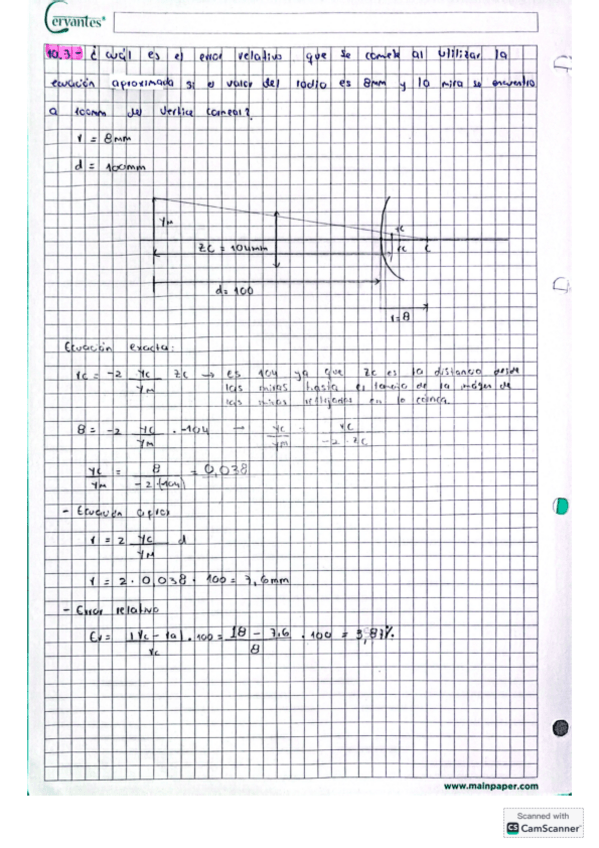 Cervantes®
10.3- ¿ cuál es el error relativo que se comete al utilizar la
ecuación aproximada si el valor del radio es 8mm y la mira se encuentra
a 100mm del vertice corneal?
r = 8mm
d = 100mm
YM
ZC = 104mm
YC
FC
C
d= 100
r=8
Ecuación exacta:
rc = -2 YC/YM ZC → es 104 ya que Zc es la distancia desde
las miras hasta el
de la imágen de
las miras reflejadas en la córnea.
8 = -2 YC/YM · -104 → YC/YM rc/-2·Zc
YC/YM = 8/-2·(-104) = 0,038
- Ecuación aprox
r = 2 YC/YM d
r = 2 · 0,038 · 100 = 7,6mm
- Error relativo
Er = |rc - ra|/rc · 100 = |8 - 7,6/8 · 100 = 3,87%
www.mainpaper.com
Scanned with
CS CamScanner